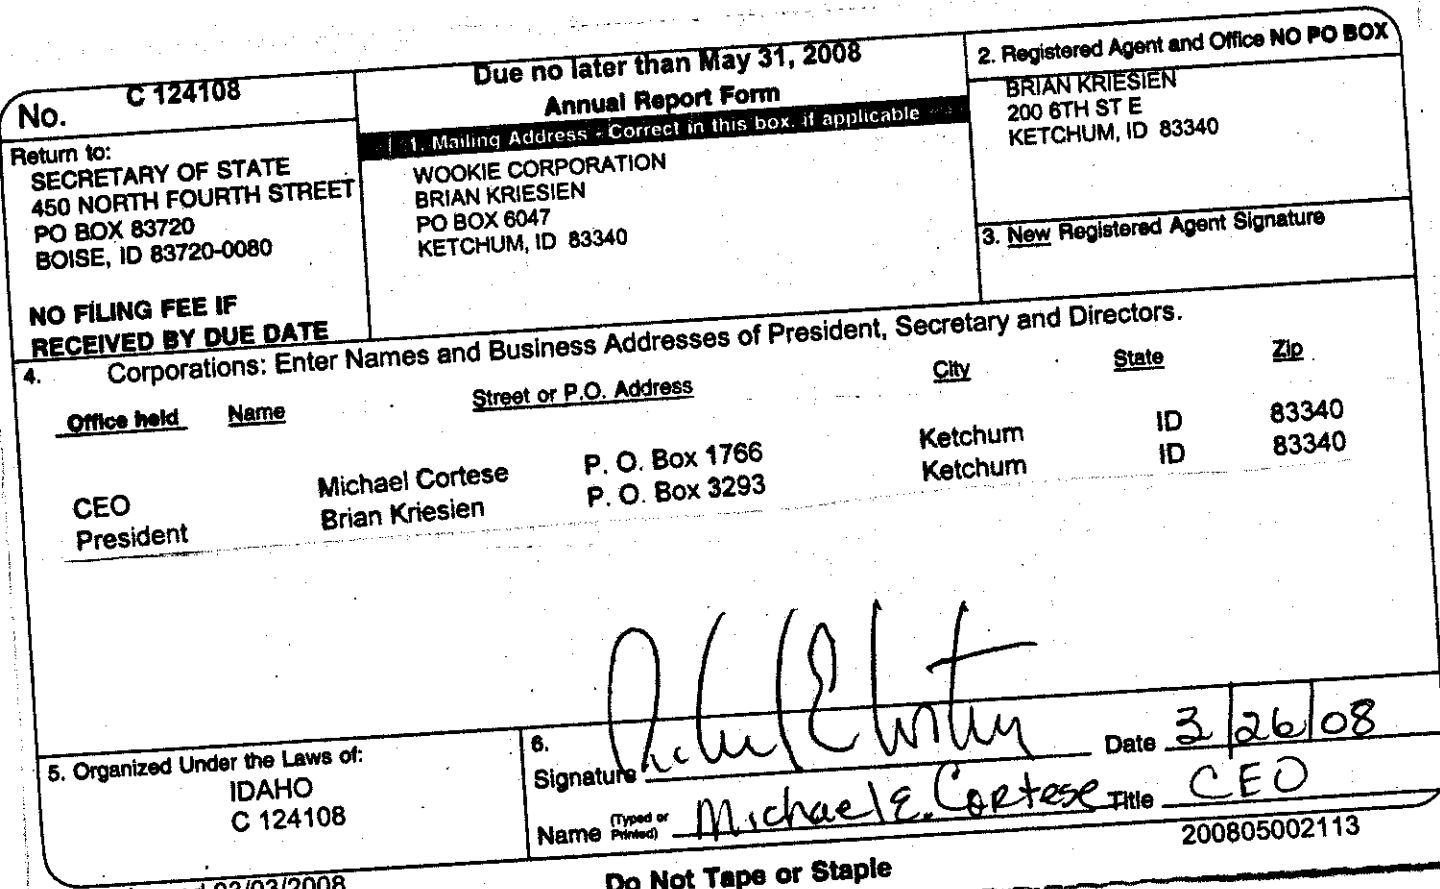 No. C 124108
Return to:
SECRETARY OF STATE
450 NORTH FOURTH STREET
PO BOX 83720
BOISE, ID 83720-0080
NO FILING FEE IF
RECEIVED BY DUE DATE
Due no later than May 31, 2008
Annual Report Form
1. Mailing Address - Correct in this box, if applicable
WOOKIE CORPORATION
BRIAN KRIESIEN
PO BOX 6047
KETCHUM, ID 83340
2. Registered Agent and Office NO PO BOX
BRIAN KRIESIEN
200 6TH ST E
KETCHUM, ID 83340
3. New Registered Agent Signature
4. Corporations: Enter Names and Business Addresses of President, Secretary and Directors.
Office held Name Street or P.O. Address City State Zip
CEO Michael Cortese P. O. Box 1766 Ketchum ID 83340
President Brian Kriesien P. O. Box 3293 Ketchum ID 83340
5. Organized Under the Laws of:
IDAHO
C 124108
6.
Signature Date 3/26/08
Name (Typed or Printed) Michael E. Cortese Title CEO
200805002113
02/03/2008
Do Not Tape or Staple